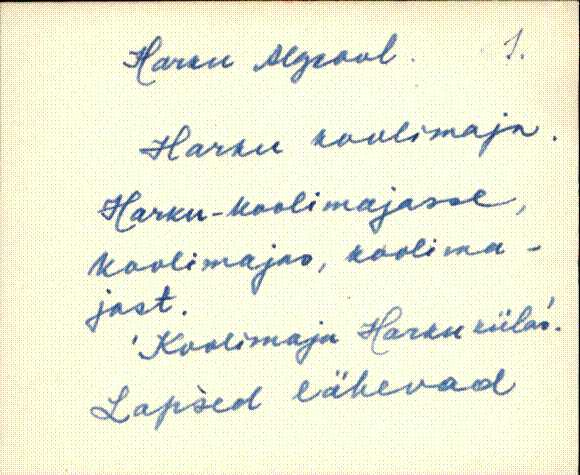 Harku Algkool. 1.
Harku koolimaja.
Harku-koolimajasse,
koolimajas, koolima-
jast.
'Koolimaja Harku külas'.
Lapsed lähevad